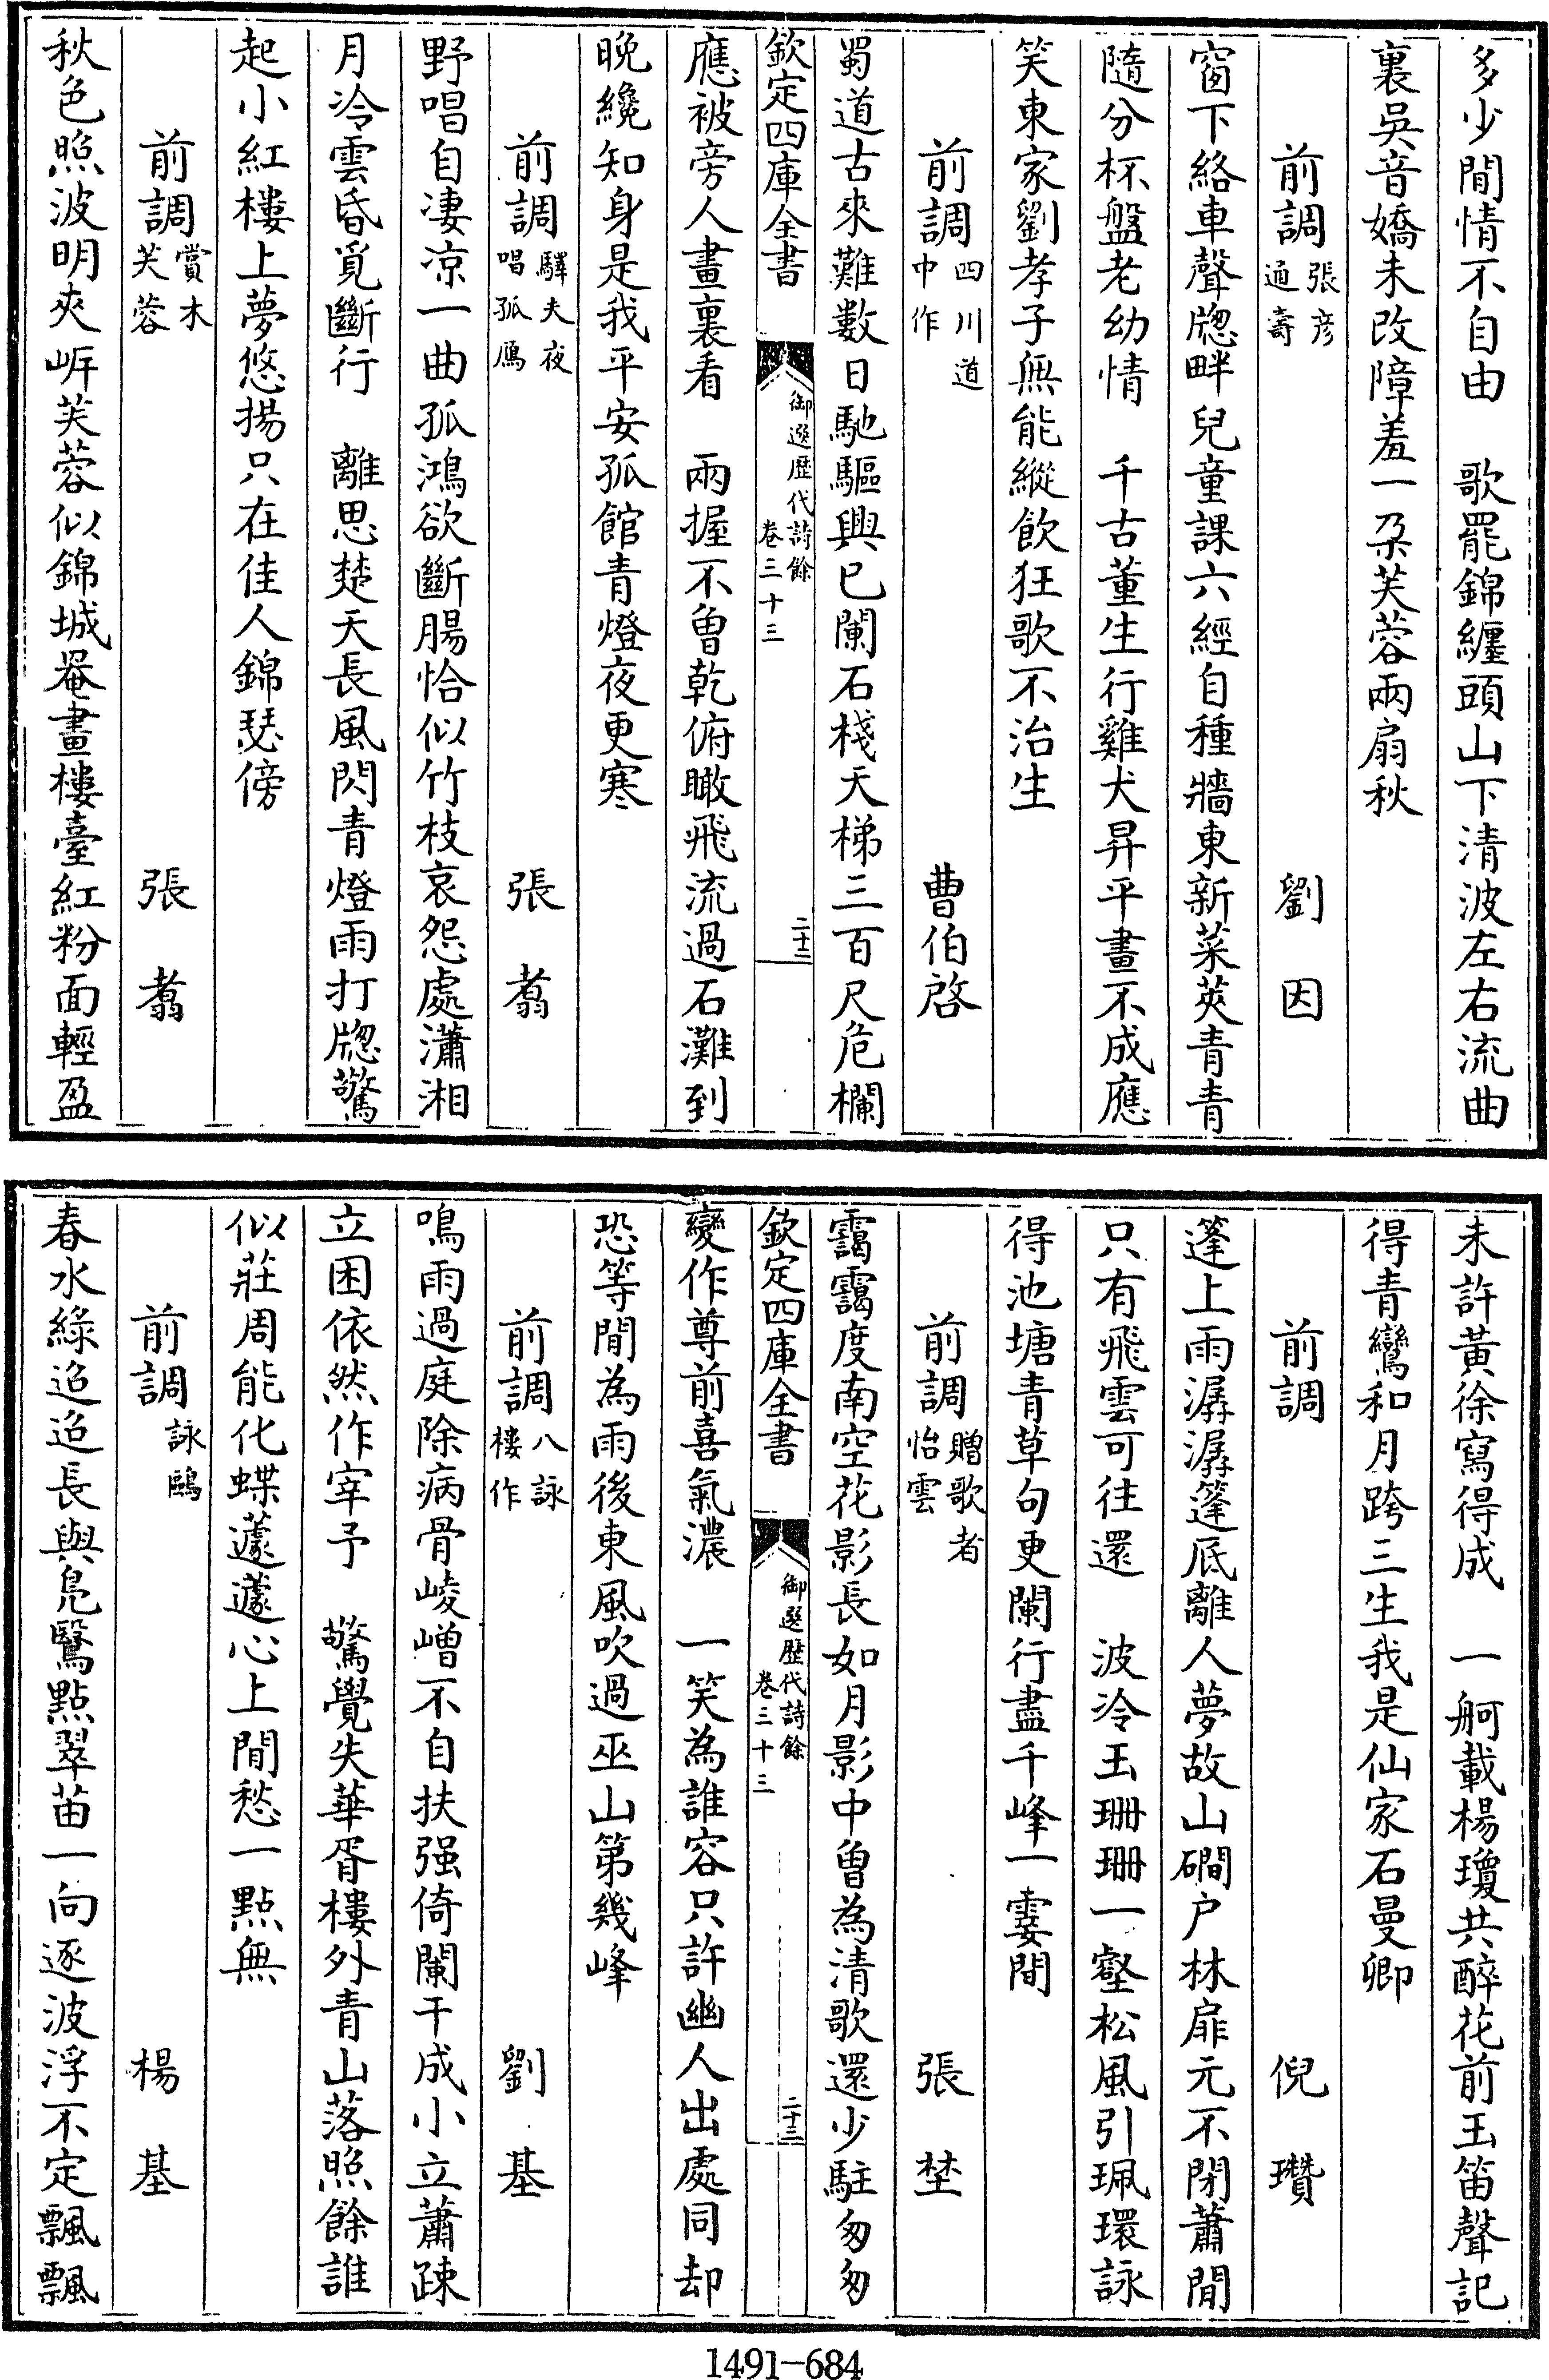 多少閒情不自由　歌罷錦纏頭山下清波左右流曲
裏吳音嬌未改障羞一朶芙蓉兩扇秋
前調張彥通壽　劉因
窗下絡車聲牕畔兒童課六經自種牆東新菜莢青青
隨分杯盤老幼情　千古董生行雞犬昇平畫不成應
笑東家劉孝子無能縱飲狂歌不治生
前調四川道中作　曹伯啓
蜀道古來難數日馳驅興已闌石棧天梯三百尺危欄
欽定四庫全書　御選歷代詩餘卷三十三　二十二
應被旁人畫裏看　兩握不曾乾俯瞰飛流過石灘到
晚纔知身是我平安孤館青燈夜更寒
前調驛夫夜唱孤鴈　張翥
野唱自凄凉一曲孤鴻欲斷腸恰似竹枝哀怨處瀟湘
月冷雲昏覓斷行　離思楚天長風閃青燈雨打牕驚
起小紅樓上夢悠揚只在佳人錦瑟傍
前調賞木芙蓉　張翥
秋色照波明夾岸芙蓉似錦城罨畫樓臺紅粉面輕盈
未許黃徐寫得成　一舸載楊瓊共醉花前玉笛聲記
得青鸞和月跨三生我是仙家石曼卿
前調　倪瓚
篷上雨潺潺篷底離人夢故山磵户林扉元不閉蕭閒
只有飛雲可往還　波冷玉珊珊一壑松風引珮環詠
得池塘青草句更闌行盡千峰一霎間
前調贈歌者怡雲　張埜
靄靄度南空花影長如月影中曾為清歌還少駐匆匆
欽定四庫全書　御選歷代詩餘卷三十三　二十三
變作尊前喜氣濃　一笑為誰容只許幽人出處同却
恐等閒為雨後東風吹過巫山第幾峰
前調八詠樓作　劉基
鳴雨過庭除病骨崚嶒不自扶强倚闌干成小立蕭疎
立困依然作宰予　驚覺失華胥樓外青山落照餘誰
似莊周能化蝶蘧蘧心上閒愁一點無
前調詠鷗　楊基
春水綠迢迢長與鳧鷖點翠苗一向逐波浮不定飄飄
1491-684